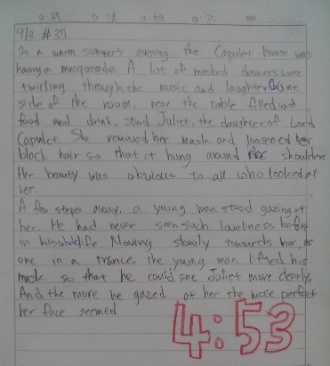 9/3. #37
On a warm summer's evening, the Capulet house was
having a masquerade. A lot of masked dancers were
twirling through the music and laughter. One
side of the room, near the table filled with
food and drink, stood Juliet, the daughter of Lord
Capulet. She removed her mask and loosened her
black hair so that it hung around shoulders
Her beauty was obvious to all who looked at
her
A few steps away, a young man stood gazing at
her. He had never seen such loveliness before
in his life. Moving slowly towards her, as
one in a trance, the young man lifted his
mask so that he could see Juliet more clearly.
And the more he gazed at her the more perfect
her face seemed
4:53